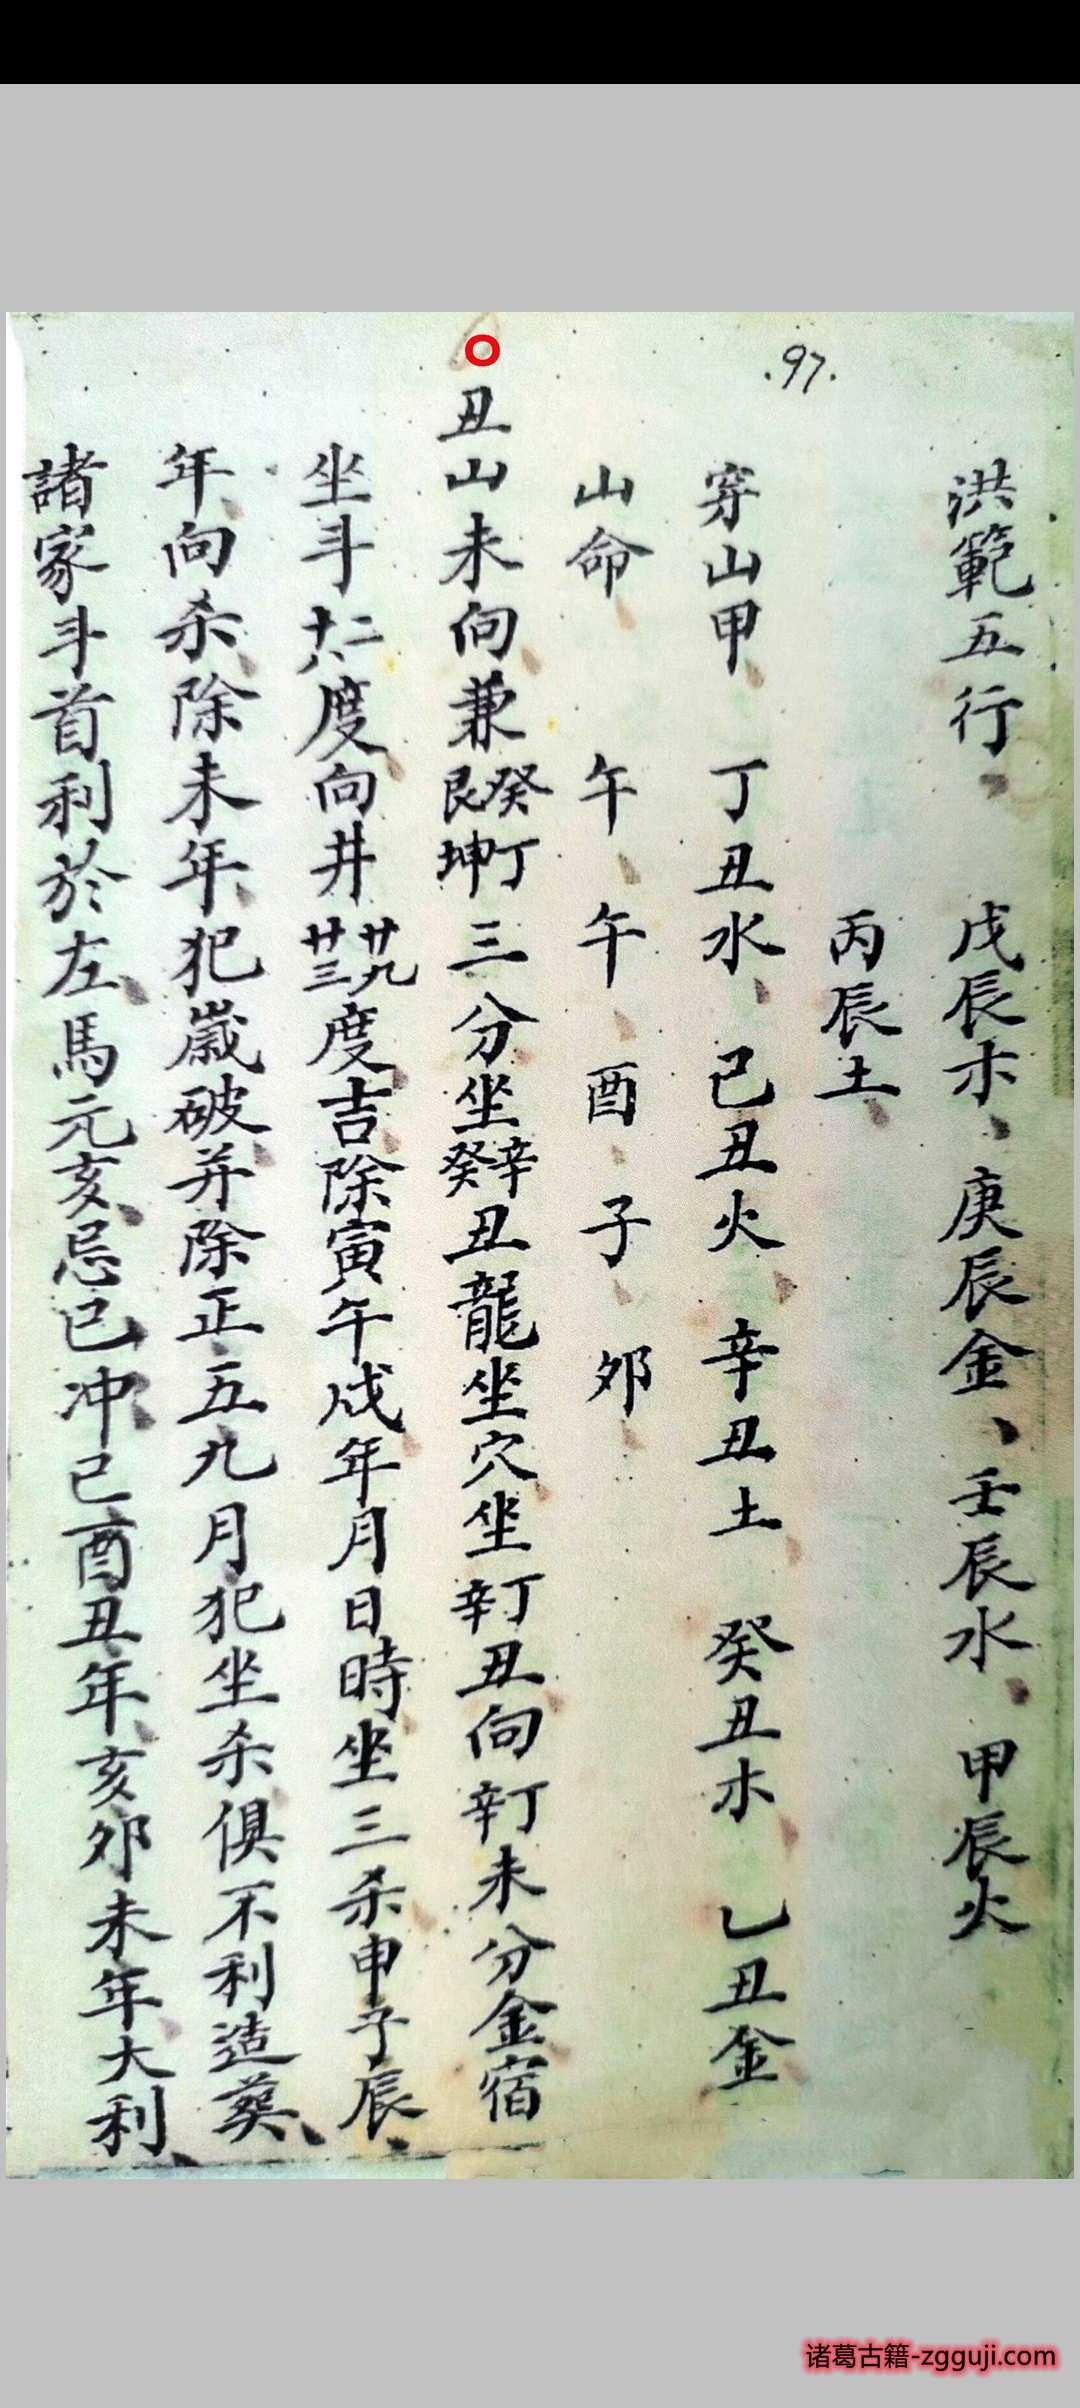 .97.
洪範五行、 戊辰木、庚辰金、壬辰水、甲辰火
丙辰土、
穿山甲、 丁丑水、己丑火、辛丑土、癸丑木、乙丑金
山命、 午、午、酉、子、夘、
丑山未向兼癸丁艮坤三分坐辛癸丑龍坐穴坐丁辛丑向丁辛未分金宿
坐斗二十八度向井廿九廿三度吉除寅午戌年月日時坐三杀申子辰、
年、向杀除未年、犯嵗破、并除正五九月犯坐杀俱不利造葵、
諸家斗首利於左、馬元亥、忌巳冲、巳酉丑年、亥夘未年大利、
诸葛古籍-zgguji.com